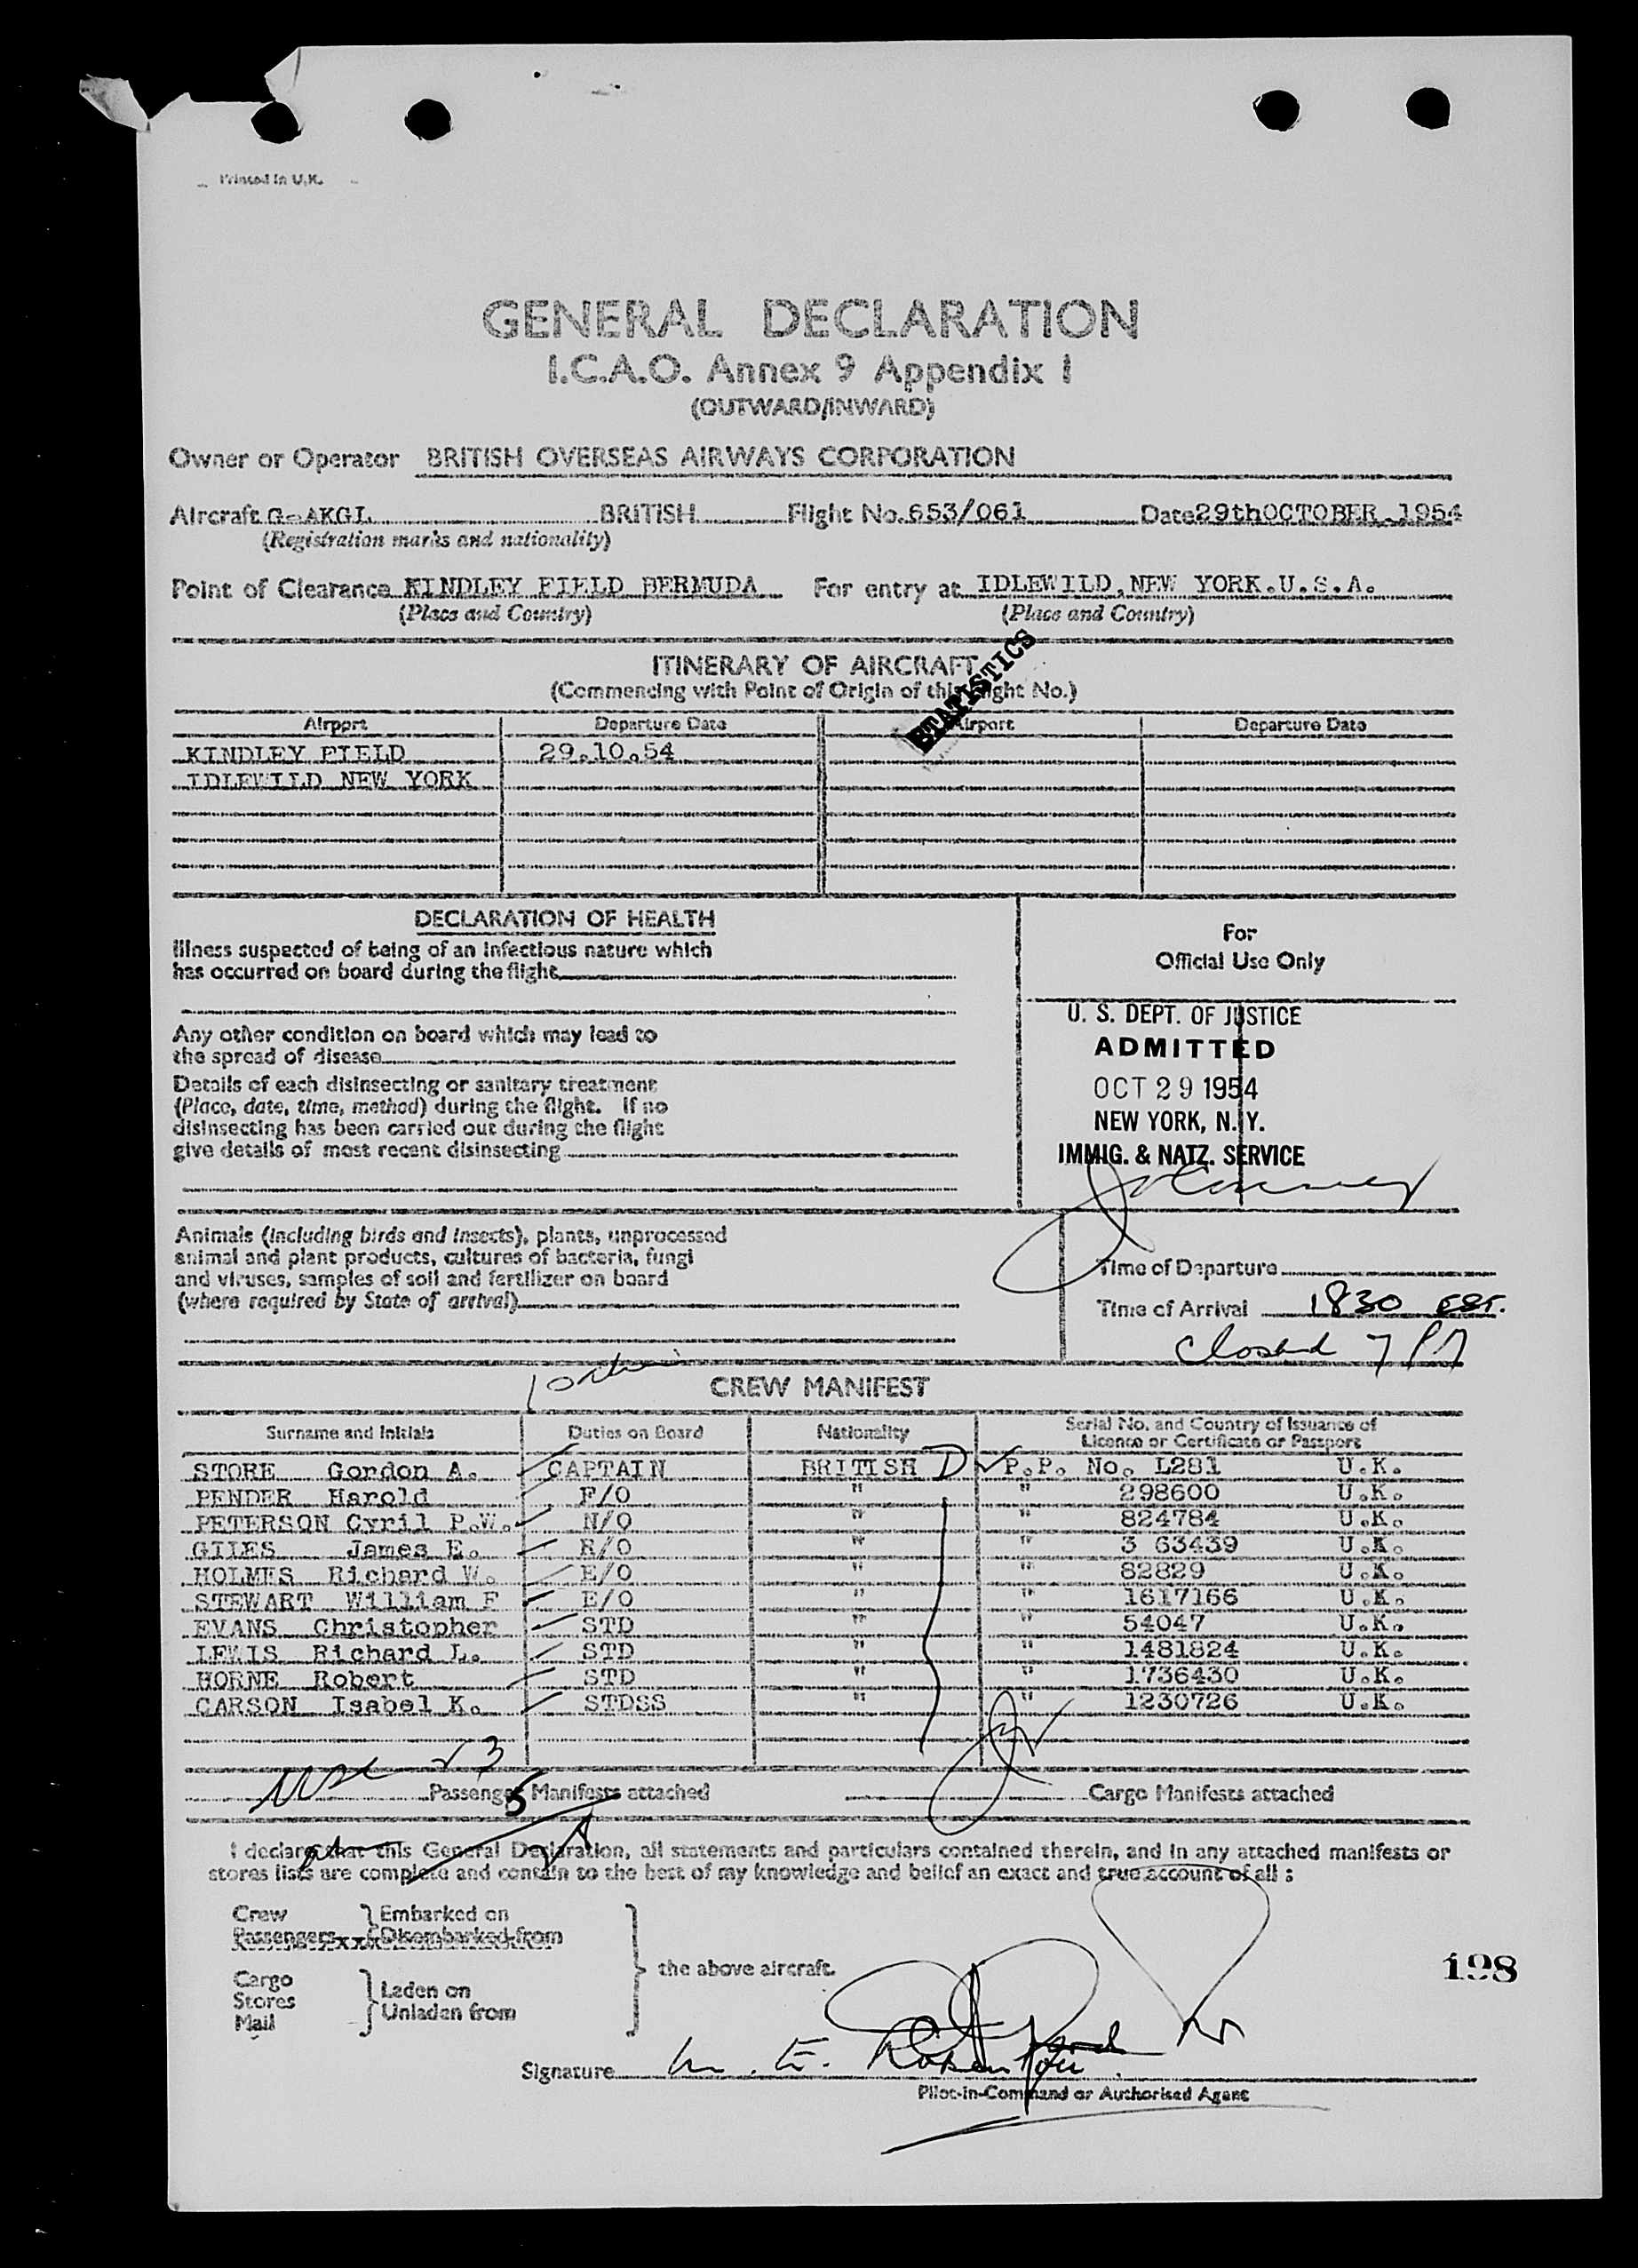 Printed in U.K.
GENERAL DECLARATION
I.C.A.O. Annex 9 Appendix I
(OUTWARD/INWARD)
Owner or Operator BRITISH OVERSEAS AIRWAYS CORPORATION
Aircraft G-AKGL BRITISH Flight No. 653/061 Date 29thOCTOBER.1954
(Registration marks and nationality)
Point of Clearance KINDLEY FIELD BERMUDA For entry at IDLEWILD,NEW YORK.U.S.A.
(Place and Country) (Place and Country)
STATISTICS
ITINERARY OF AIRCRAFT
(Commencing with Point of Origin of this Flight No.)
Airport Departure Date Airport Departure Date
KINDLEY FIELD 29.10.54
IDLEWILD NEW YORK
DECLARATION OF HEALTH
Illness suspected of being of an infectious nature which
has occurred on board during the flight
Any other condition on board which may lead to
the spread of disease
Details of each disinsecting or sanitary treatment
(Place, date, time, method) during the flight. If no
disinsecting has been carried out during the flight
give details of most recent disinsecting
For
Official Use Only
U. S. DEPT. OF JUSTICE
ADMITTED
OCT 29 1954
NEW YORK, N. Y.
IMMIG. & NATZ. SERVICE
Animals (including birds and insects), plants, unprocessed
animal and plant products, cultures of bacteria, fungi
and viruses, samples of soil and fertilizer on board
(where required by State of arrival)
Time of Departure
Time of Arrival 1830 EST.
Closed 7 PM
CREW MANIFEST
Surname and Initials Duties on Board Nationality Serial No. and Country of Issuance of
Licence or Certificate or Passport
STORE Gordon A. CAPTAIN BRITISH D P.P. No. L281 U.K.
PENDER Harold F/O " " 298600 U.K.
PETERSON Cyril P.W. N/O " " 824784 U.K.
GILES James E. R/O " " 3 63439 U.K.
HOLMES Richard W. E/O " " 82829 U.K.
STEWART William F E/O " " 1617166 U.K.
EVANS Christopher STD " " 54047 U.K.
LEWIS Richard L. STD " " 1481824 U.K.
HORNE Robert STD " " 1736430 U.K.
CARSON Isabel K. STDSS " " 1230726 U.K.
Passenger Manifests attached Cargo Manifests attached
I declare that this General Declaration, all statements and particulars contained therein, and in any attached manifests or
stores lists are complete and contain to the best of my knowledge and belief an exact and true account of all :
Crew Embarked on
Passengers Disembarked from
the above aircraft.
Cargo
Stores
Mail
Laden on
Unladen from
198
Signature
Pilot-in-Command or Authorised Agent